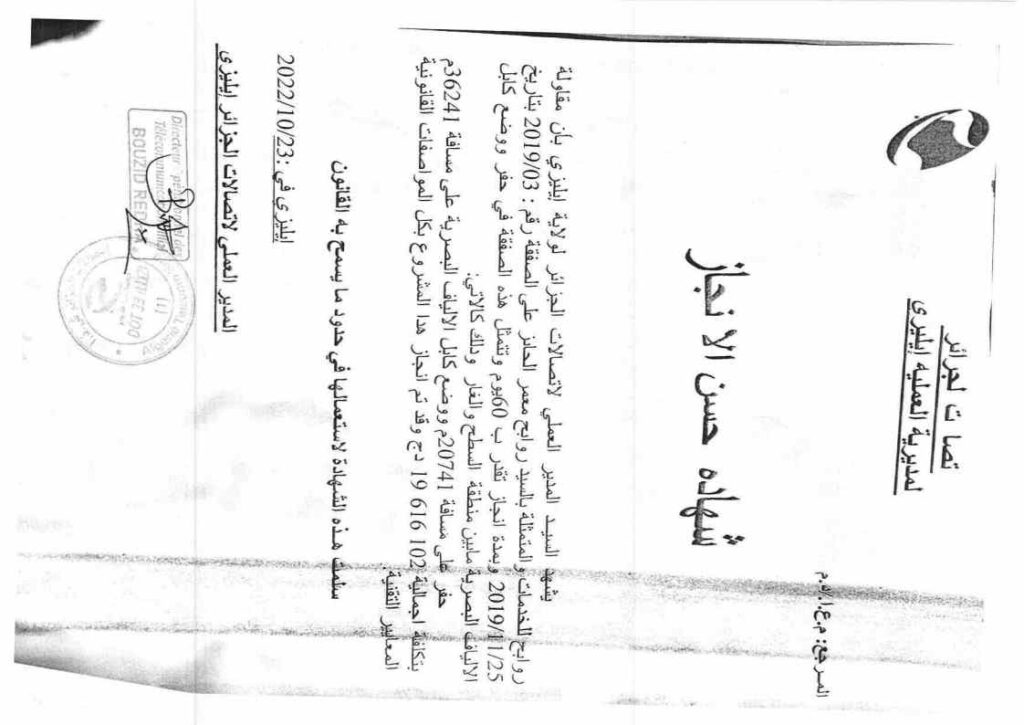 تصا ت لجزائر
لمديرية العملية إيليزي
المرجع: م.ع.ا.إ/ق.م
شهاده حسن الا نجاز
يشهد السيد المدير العملي لاتصالات الجزائر لولاية إيليزي بأن مقاولة
روابح للخدمات والمتمثلة بالسيد روابح معمر الحائز على الصفقة رقم : 2019/03 بتاريخ
2019/11/25 وبمدة انجاز تقدر ب 60يوم وتتمثل هذه الصفقة في حفر ووضع كابل
الالياف البصرية مابين منطقة السطح والغار وذلك كالاتي:
حفر على مسافة 20741م ووضع كابل الالياف البصرية على مسافة 36241م
بتكلفة اجمالية 102 616 19 دج وقد تم انجاز هدا المشروع بكل المواصفات القانونية
المعايير التقنية.
سلمت هذه الشهادة لاستعمالها في حدود ما يسمح به القانون
إيليزي في :2022/10/23
المدير العملي لاتصالات الجزائر إيليزي
Directeur
Télécommunic
BOUZID RED